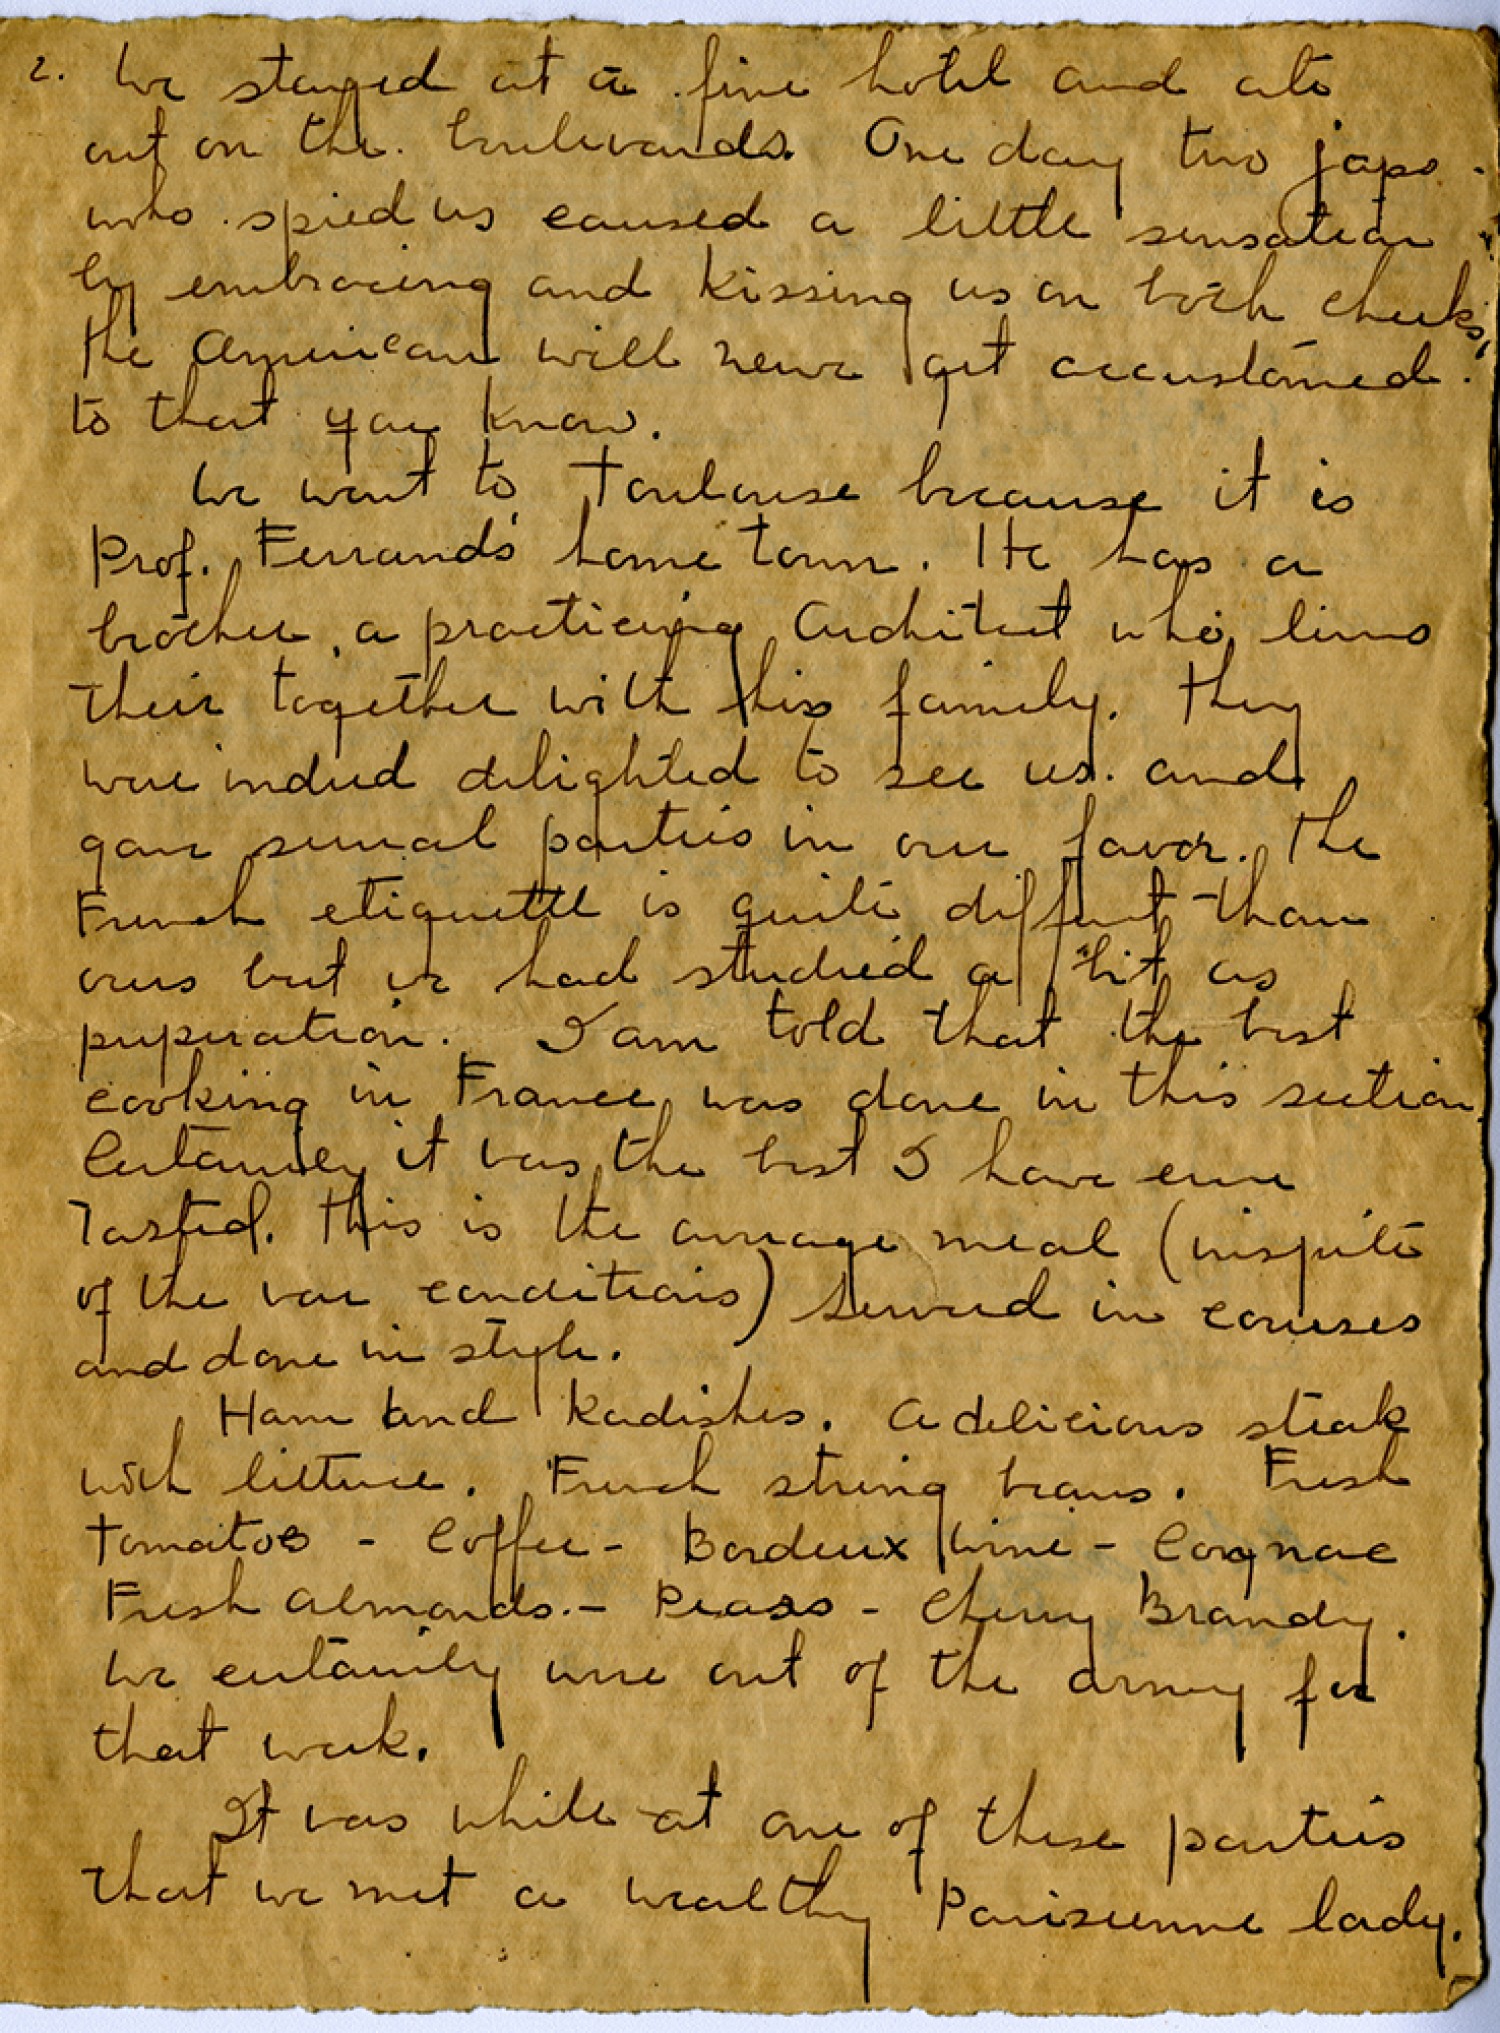 2. We stayed at a fine hotel and ate
out on the boulevards. One day two japs
who spied us caused a little sensation
by embracing and kissing us on both cheeks,
the American will never get accustomed
to that you know.
We went to Toulouse because it is
Prof. Ferrands home town. He has a
brother, a practicing Architect who lives
their together with his family. They
were indeed delighted to see us. and
gave several parties in our favor. The
French etiquette is quite diffent than
ours but we had studied a bit as
preperation. I am told that the best
cooking in France was done in this section.
Certainley it was the best I have ever
Tasted. This is the average meal (inspite
of the war conditions) served in courses
and done in style.
Ham and Radishes. A delicious steak
with lettuce. French string beans. Fresh
Tomatoes - Coffee - Bordeux Wine - Cognac
Fresh Almonds. - Pears - Cherry Brandy.
We certainily were out of the army for
that week.
It was while at one of these parties
that we met a wealthy Parisienne lady.